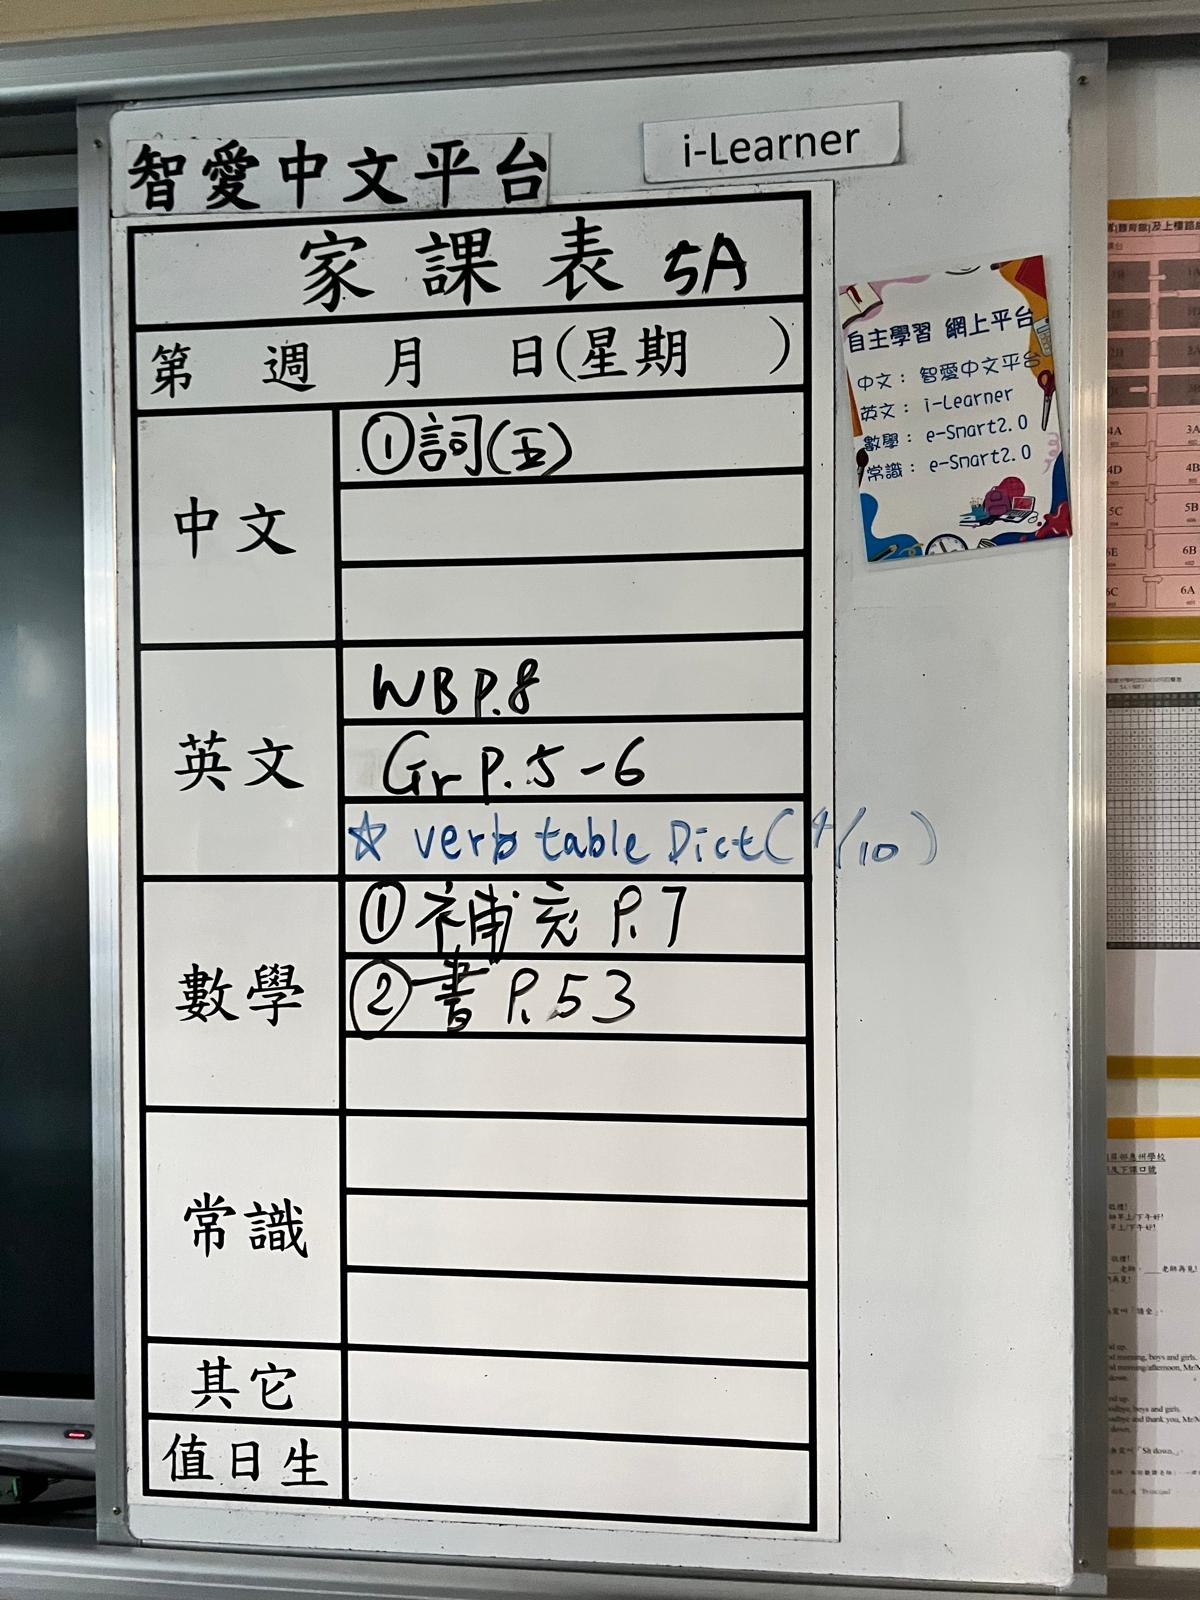 智愛中文平台
i-Learner
家課表 5A
第 週 月 日(星期 )
中文
①詞(五)
英文
WB P.8
Gr P.5-6
☆ verb table Dict(4/10)
數學
①補充 P.7
②書 P.53
常識
其它
值日生
自主學習 網上平台
中文：智愛中文平台
英文：i-Learner
數學：e-Smart2.0
常識：e-Smart2.0
4A
3A
4D
4B
5C
5B
6E
6B
6C
6A